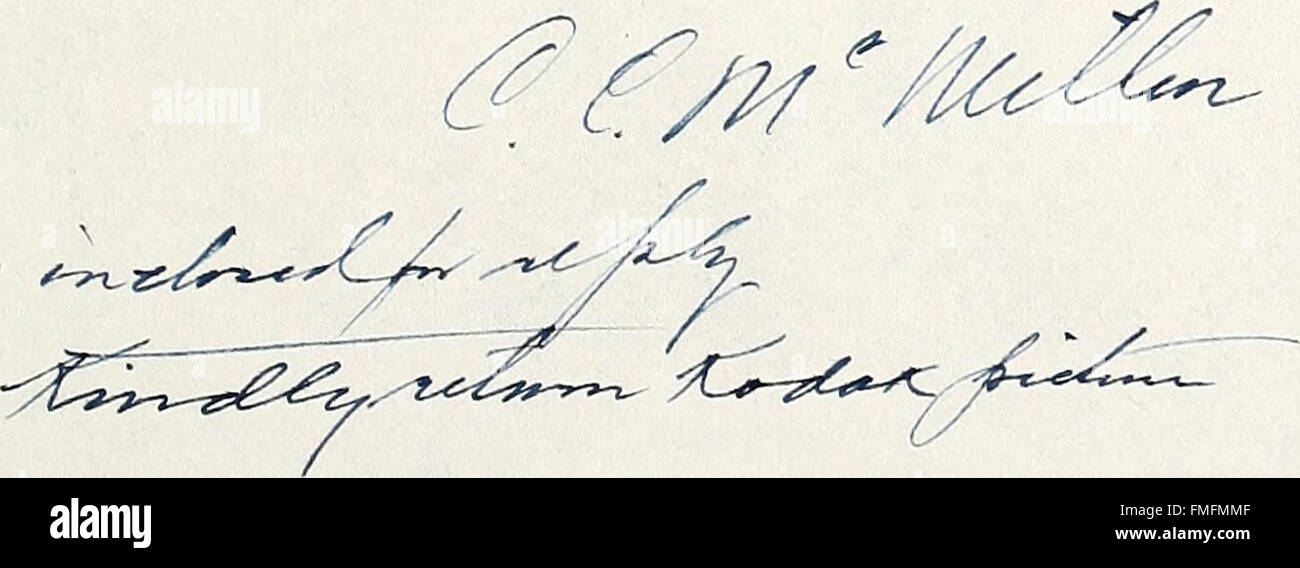 C. C. McMillen
inclosed for reply
Kindly return Kodak picture
alamy
Image ID: FMFMMF
www.alamy.com